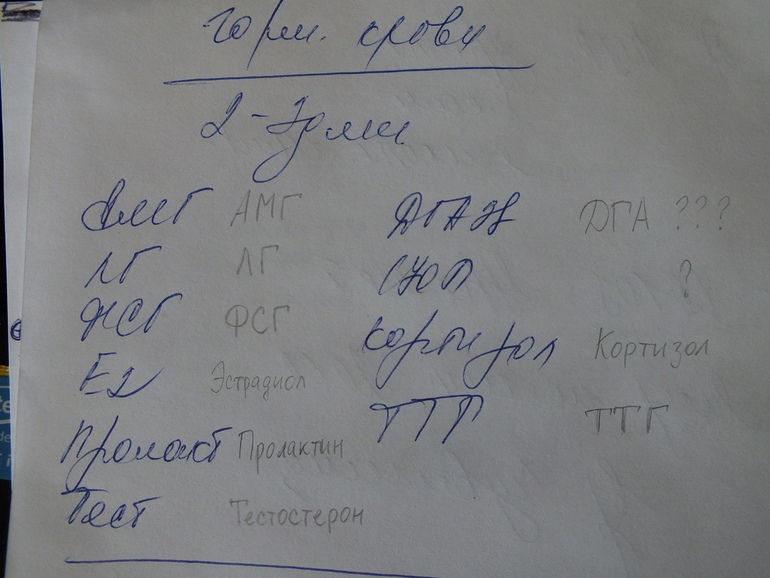 Горм. крови
2-3 д.м.ц.
АМГ АМГ ДГАЭ ДГА ???
ЛГ ЛГ 17ОП ?
ФСГ ФСГ Кортизол Кортизол
E2 Эстрадиол
Пролакт Пролактин ТТГ ТТГ
Тест Тестостерон